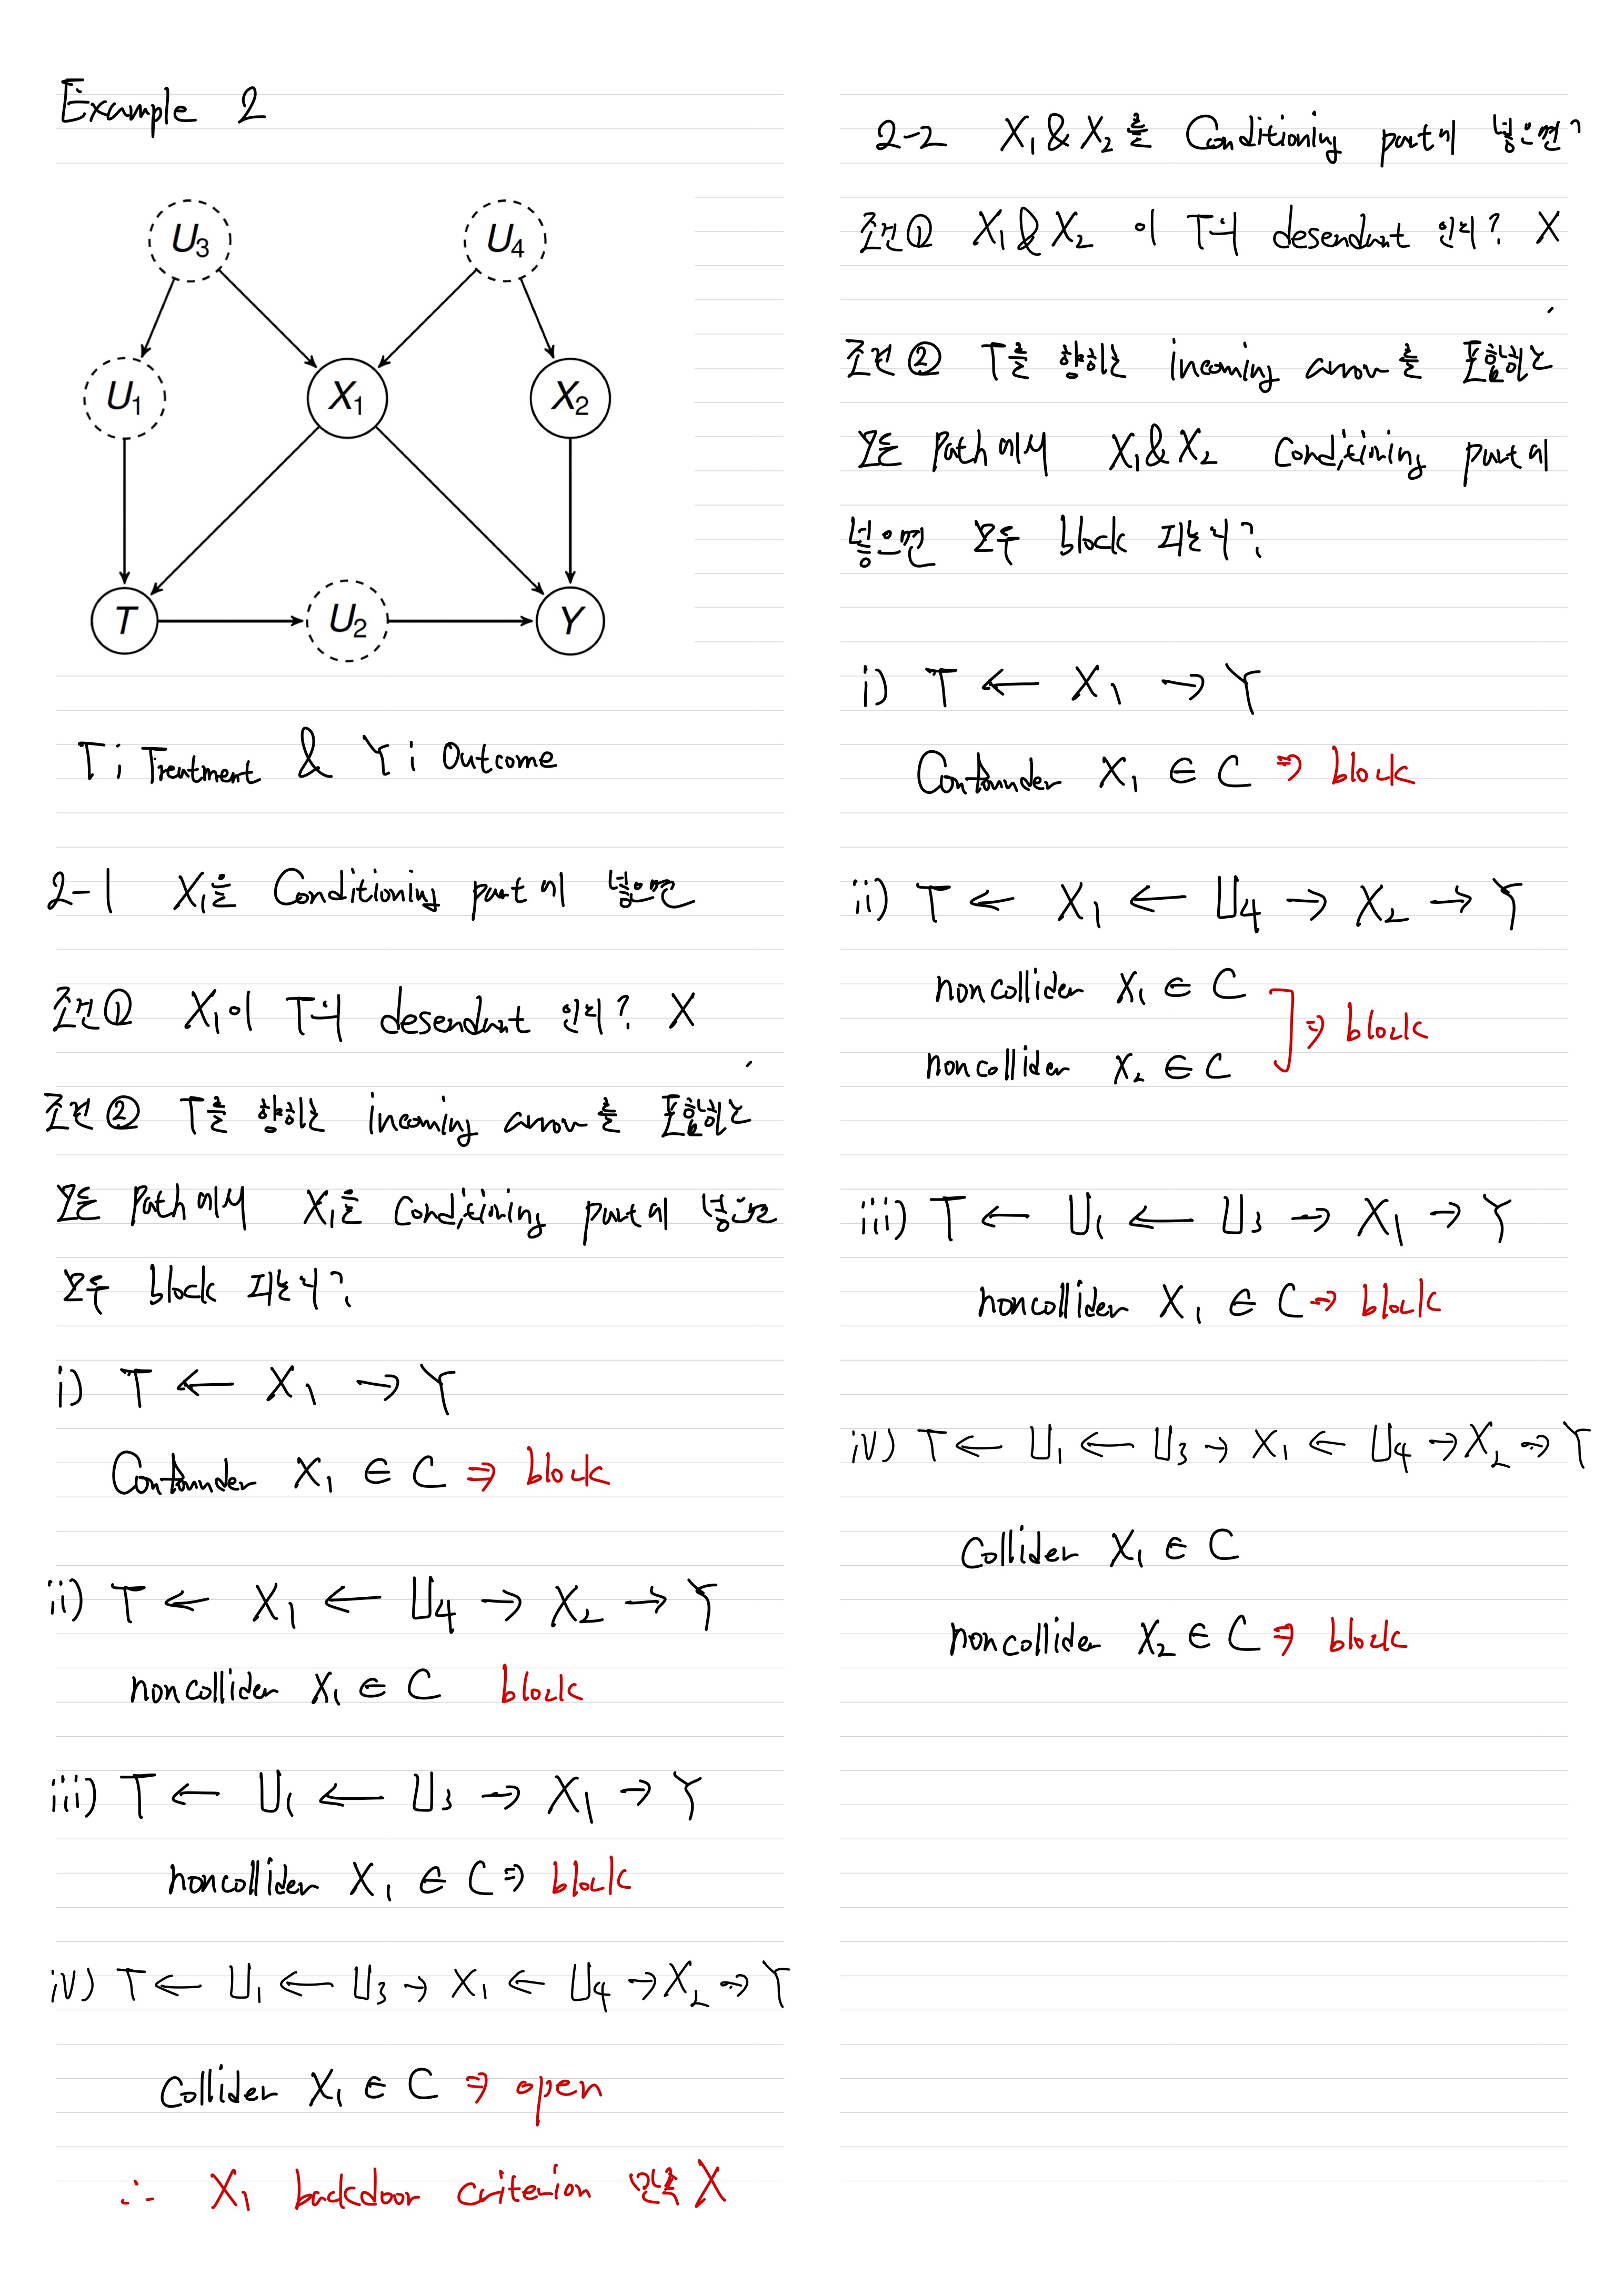 Example 2
U3 U4
U1 X1 X2
T U2 Y
T ; Treatment & Y ; Outcome
2-1 X1을 Conditioning part에 넣으면
조건① X1이 T의 desendant 인지? X
조건② T를 향하는 incoming arrow를 포함하는
모든 Path에서 X1을 Conditioning part에 넣으면
모두 block 되는가?
i) T ← X1 → Y
Confounder X1 ∈ C ⇒ block
ii) T ← X1 ← U4 → X2 → Y
noncollider X1 ∈ C block
iii) T ← U1 ← U3 → X1 → Y
noncollider X1 ∈ C ⇒ block
iv) T ← U1 ← U3 → X1 ← U4 → X2 → Y
Collider X1 ∈ C ⇒ open
∴ X1 backdoor criterion 만족 X
2-2 X1 & X2를 Conditioning part에 넣으면?
조건① X1 & X2 이 T의 desendant 인지? X
조건② T를 향하는 incoming arrow를 포함하는
모든 Path에서 X1 & X2 Conditioning part에
넣으면 모두 block 되는가?
i) T ← X1 → Y
Confounder X1 ∈ C ⇒ block
ii) T ← X1 ← U4 → X2 → Y
noncollider X1 ∈ C
⇒ block
noncollider X2 ∈ C
iii) T ← U1 ← U3 → X1 → Y
noncollider X1 ∈ C ⇒ block
iv) T ← U1 ← U3 → X1 ← U4 → X2 → Y
Collider X1 ∈ C
noncollider X2 ∈ C ⇒ block